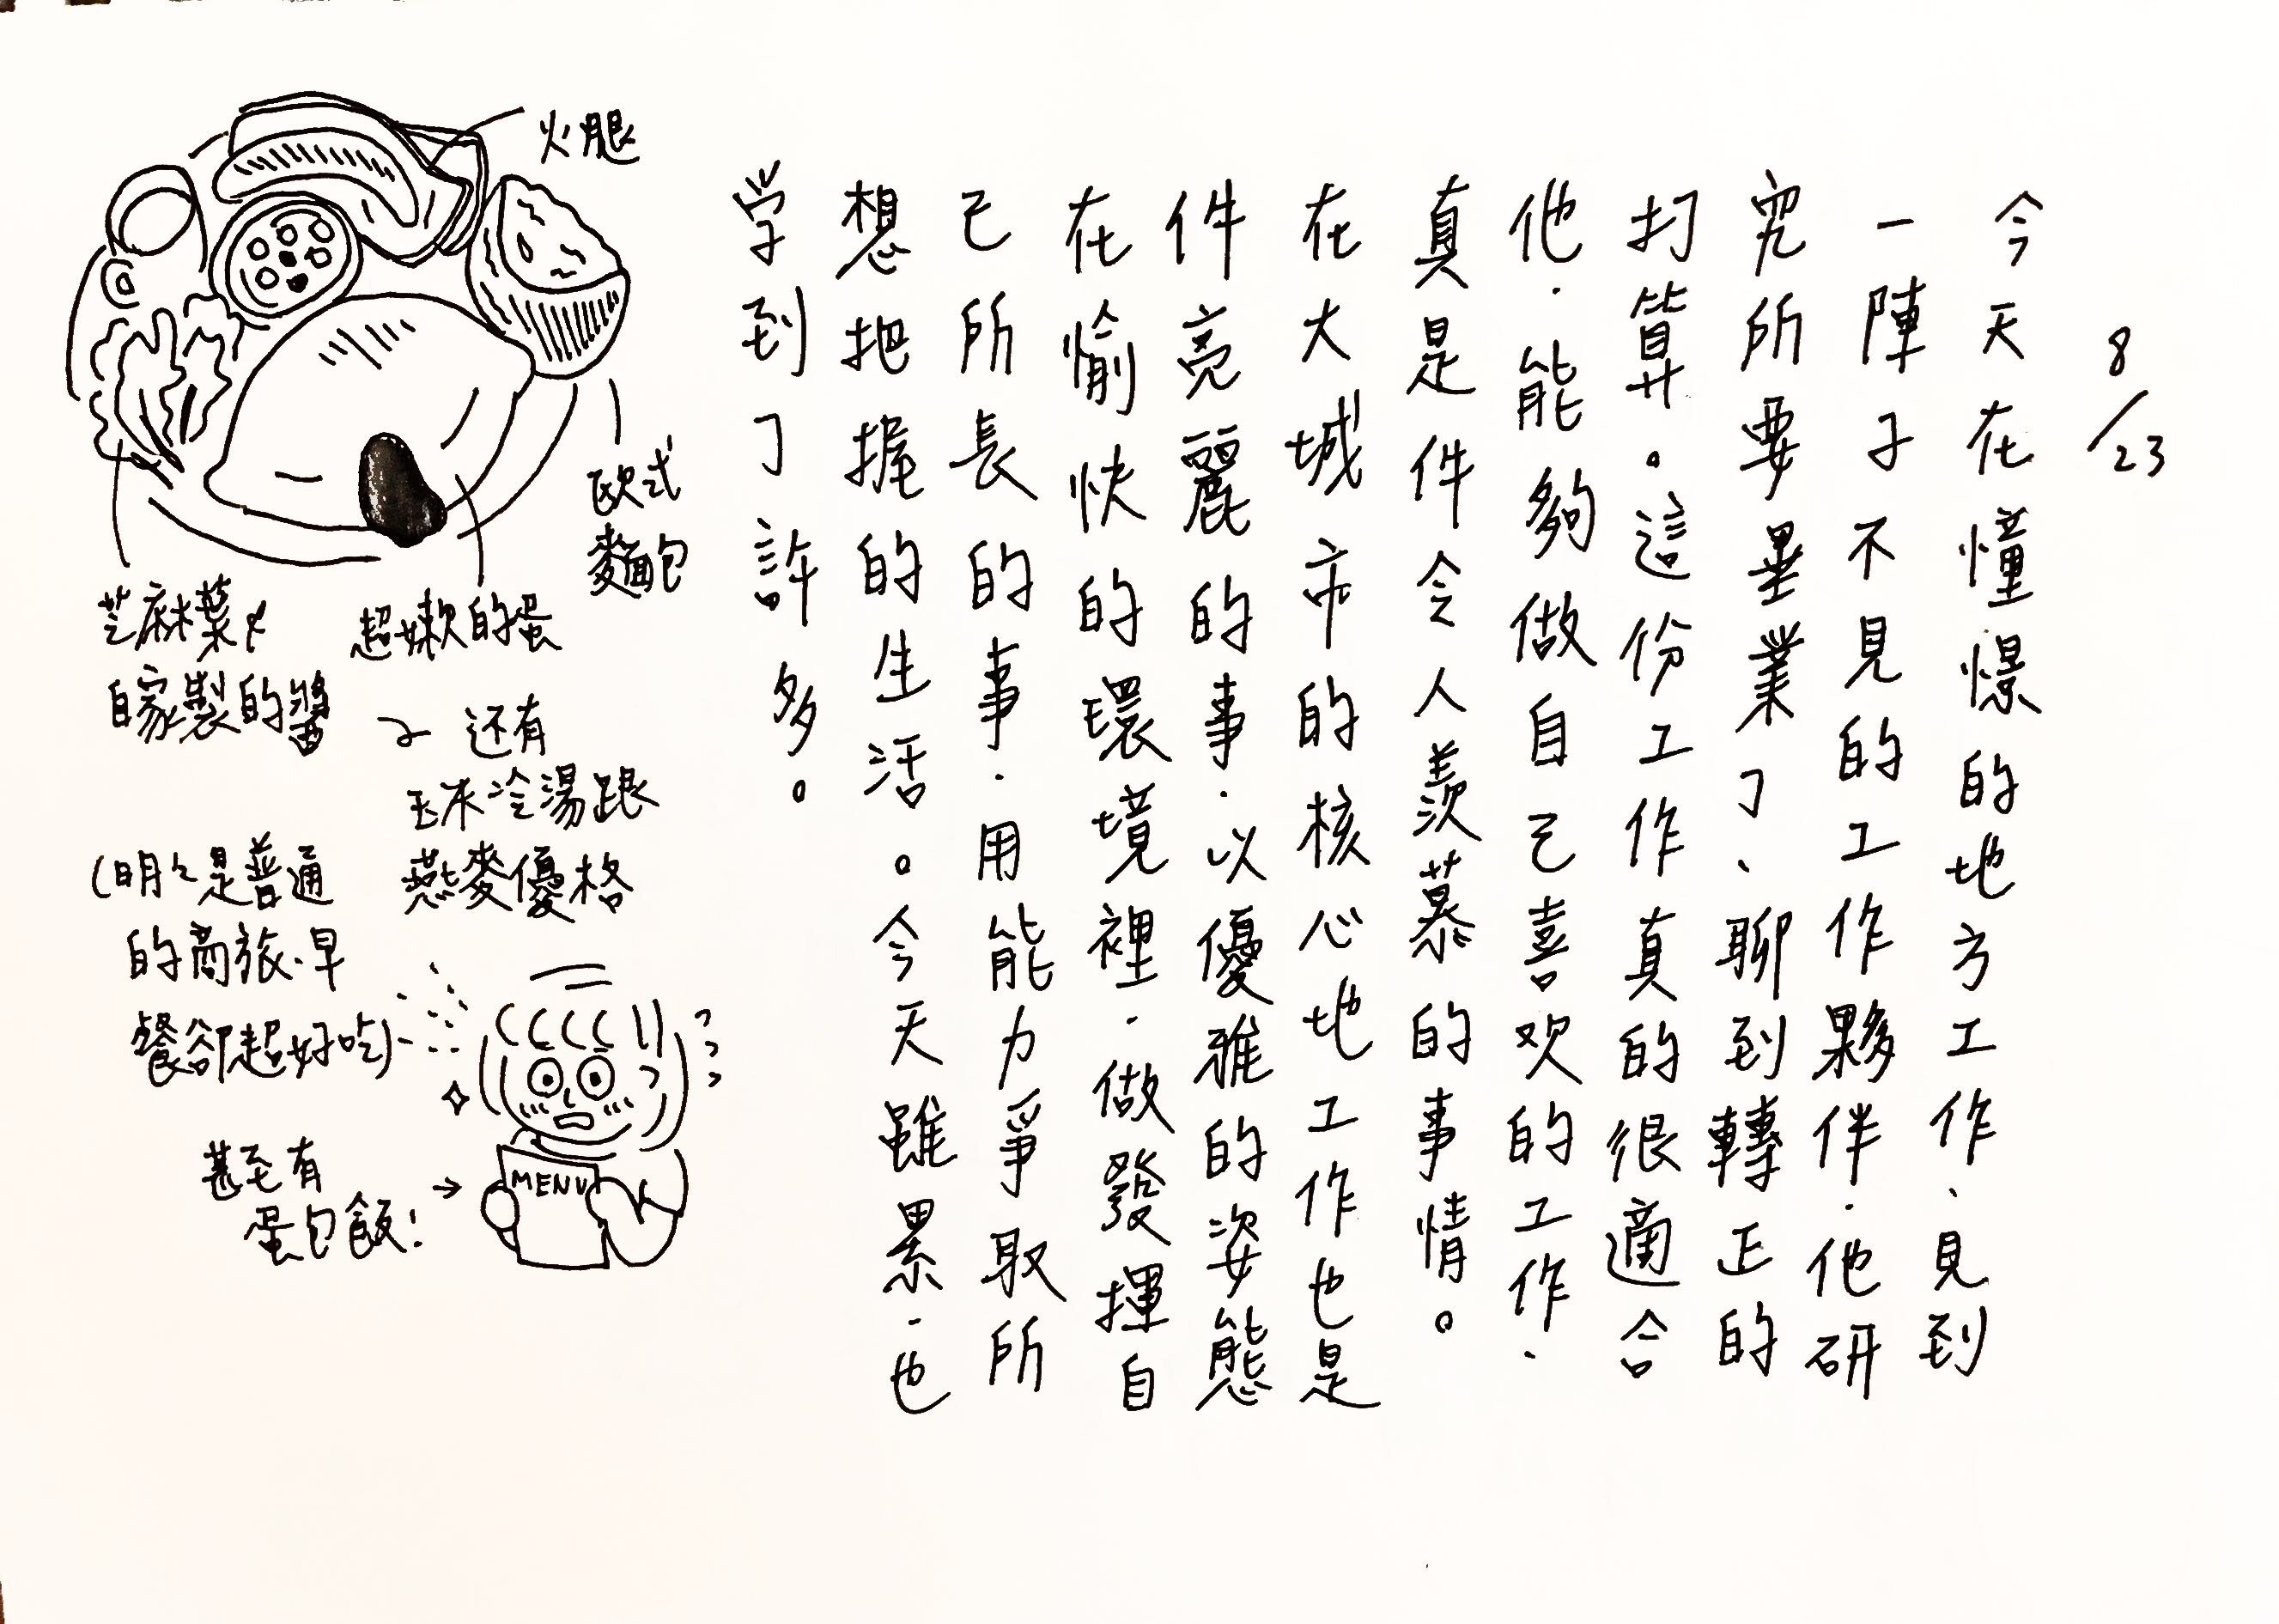 8/23
今天在憧憬的地方工作、見到
一陣子不見的工作夥伴．他研
究所要畢業了、聊到轉正的
打算。這份工作真的很適合
他．能夠做自己喜欢的工作．
真是件令人羨慕的事情。
在大城市的核心地工作也是
件亮麗的事．以優雅的姿態
在愉快的環境裡．做發揮自
己所長的事．用能力爭取所
想把握的生活。今天雖累．也
学到了許多。
火腿
欧式
麵包
超嫩的蛋
芝麻葉&
自家製的醬
还有
玉米冷湯跟
燕麥優格
(明々是普通
的商旅．早
餐卻超好吃)
甚至有
蛋包飯!
MENU